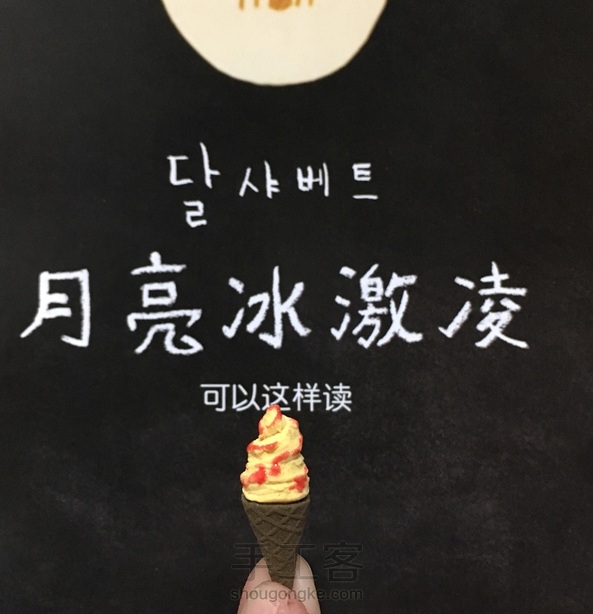 달샤베트
月亮冰激凌
可以这样读
手工客
shougongke.com